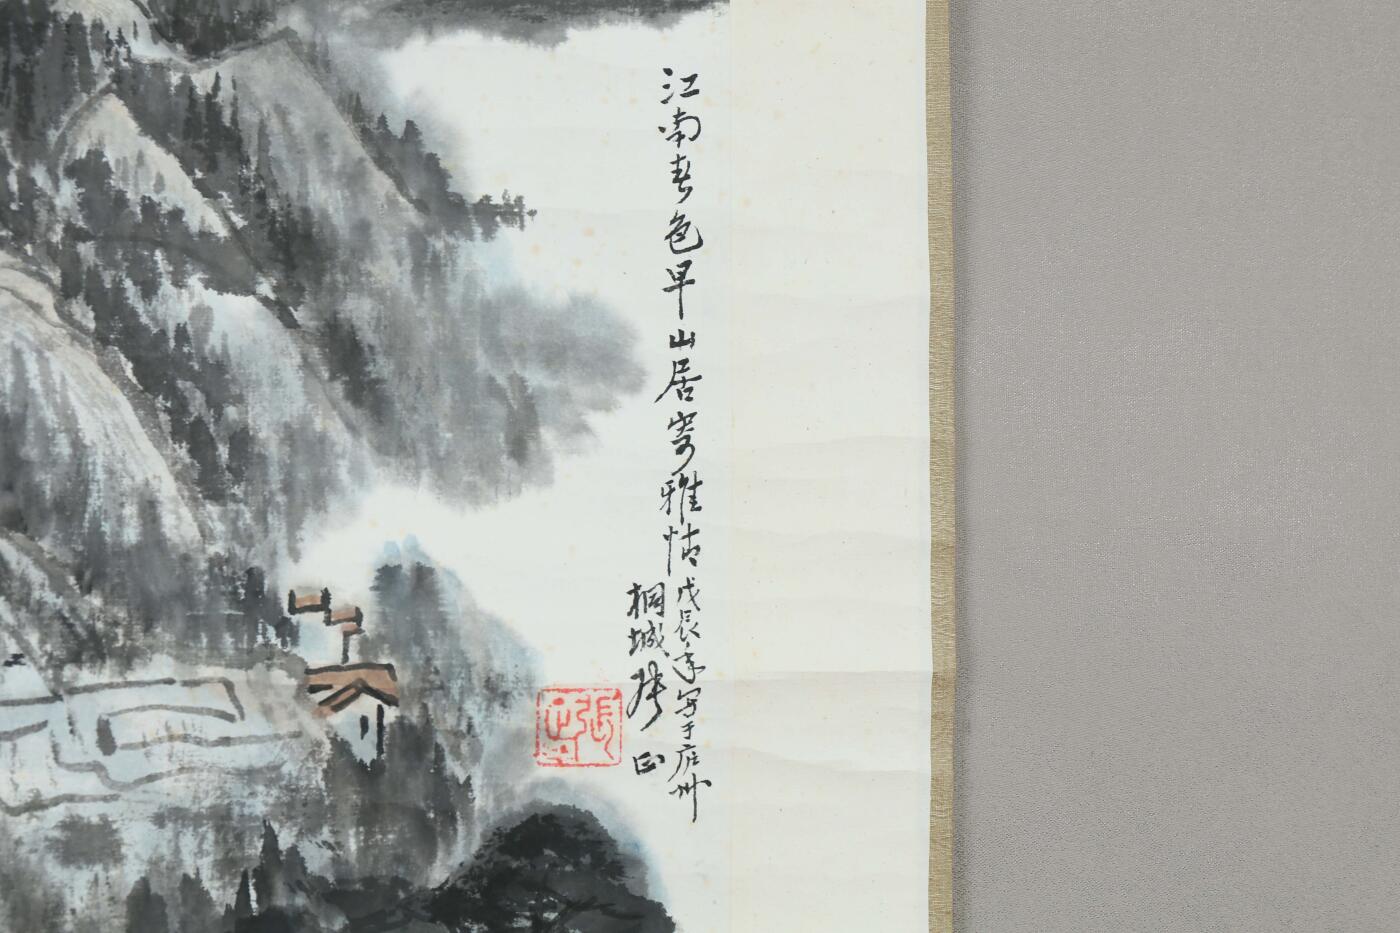 江南春色早山居寄雅情戊辰年写于庐州
桐城张正
張正